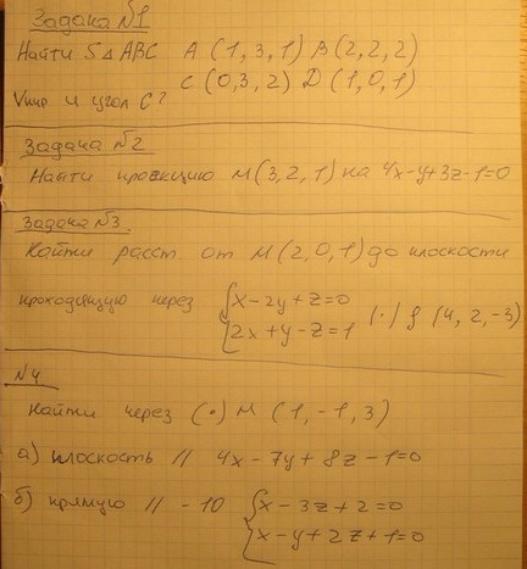 Задача №1
Найти S△ABC A(1,3,1) B(2,2,2)
C(0,3,2) D(1,0,1)
Vпир и угол C?
Задача №2
Найти проекцию M(3,2,1) на 4x-y+3z-1=0
Задача №3.
Найти расст от M(2,0,1) до плоскости
проходящую через {x-2y+z=0
{2x+y-z=1 (·) (4, 2, -3)
№4
Найти через (·) M (1,-1,3)
а) плоскость // 4x-7y+8z-1=0
б) прямую // -10 {x-3z+2=0
{x-y+2z+1=0